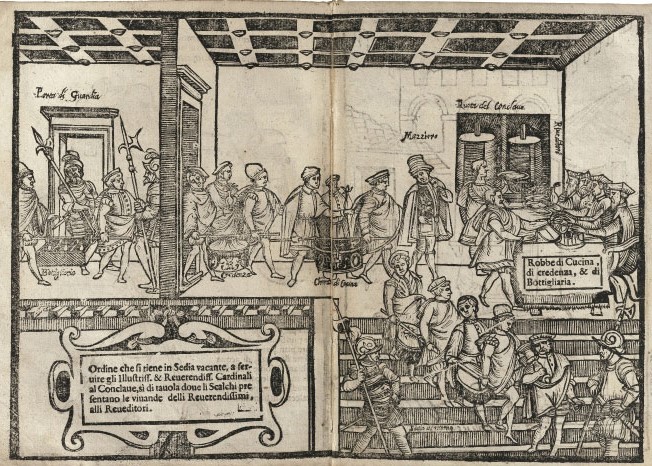 Porta di Guardia
Ruota del Conclaue
Mazziero
Bottigliaria
Credenza
Robbe di Cucina,
di credenza, & di
Bottigliaria.
Ordine che si tiene in Sedia vacante, a ser-
uire gli Illustriss. & Reuerendiss. Cardinali
al Conclaue, sì di tauola doue li Scalchi pre
sentano le viuande delli Reuerendissimi,
alli Reueditori.